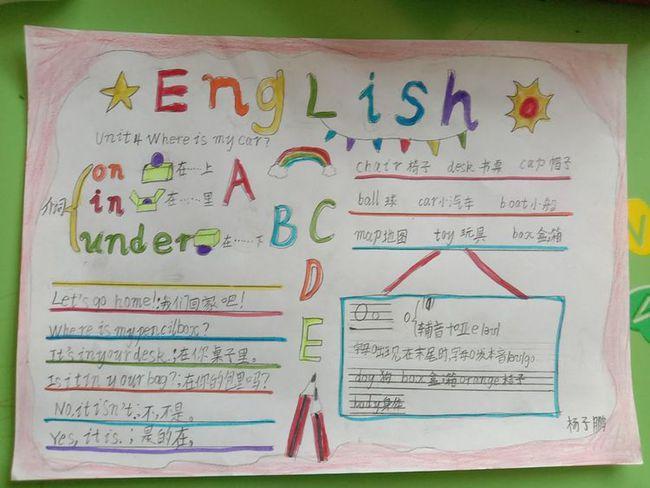 English
Unit4 Where is my car?
介词
on 在……上
in 在……里
under 在……下
A
B
C
D
E
chair 椅子 desk 书桌 cap 帽子
ball 球 car小汽车 boat小船
map地图 toy 玩具 box 盒;箱
Let's go home!;我们回家吧!
Where is my pencil box?
It's in your desk.;在你桌子里。
Is it in your bag?;在你的包里吗?
No, it isn't.;不,不是。
Yes, it is.;是的在。
Oo
dog 狗 box 盒;箱 orange 桔子
body身体
杨子鹏